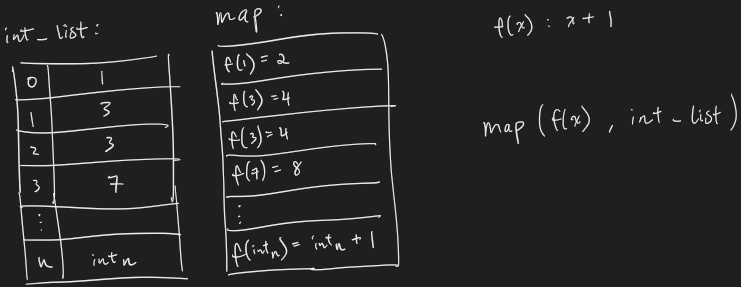 int_list:
0 1
1 3
2 3
3 7
⋮
n intₙ
map:
f(1) = 2
f(3) = 4
f(3) = 4
f(7) = 8
⋮
f(intₙ) = intₙ + 1
f(x) : x + 1
map (f(x) , int_list)